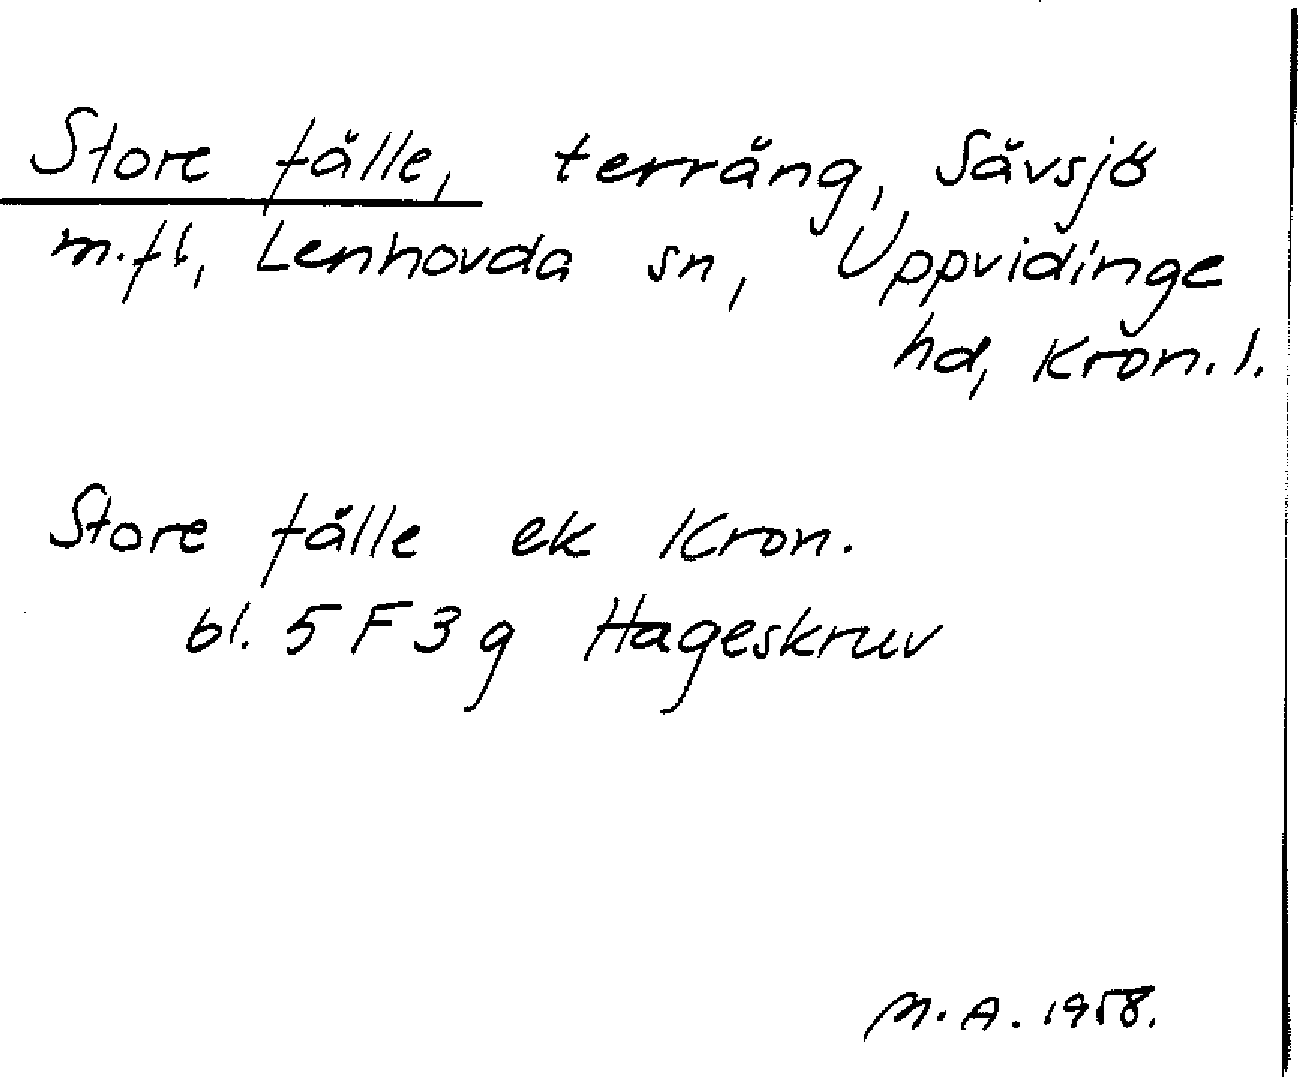 Store fälle, terräng, Sävsjö
m.fl, Lenhovda sn, Uppvidinge
hd, Kron. l.
Store fälle ek Kron.
bl. 5 F 3 g Hageskruv
M. A. 1958.